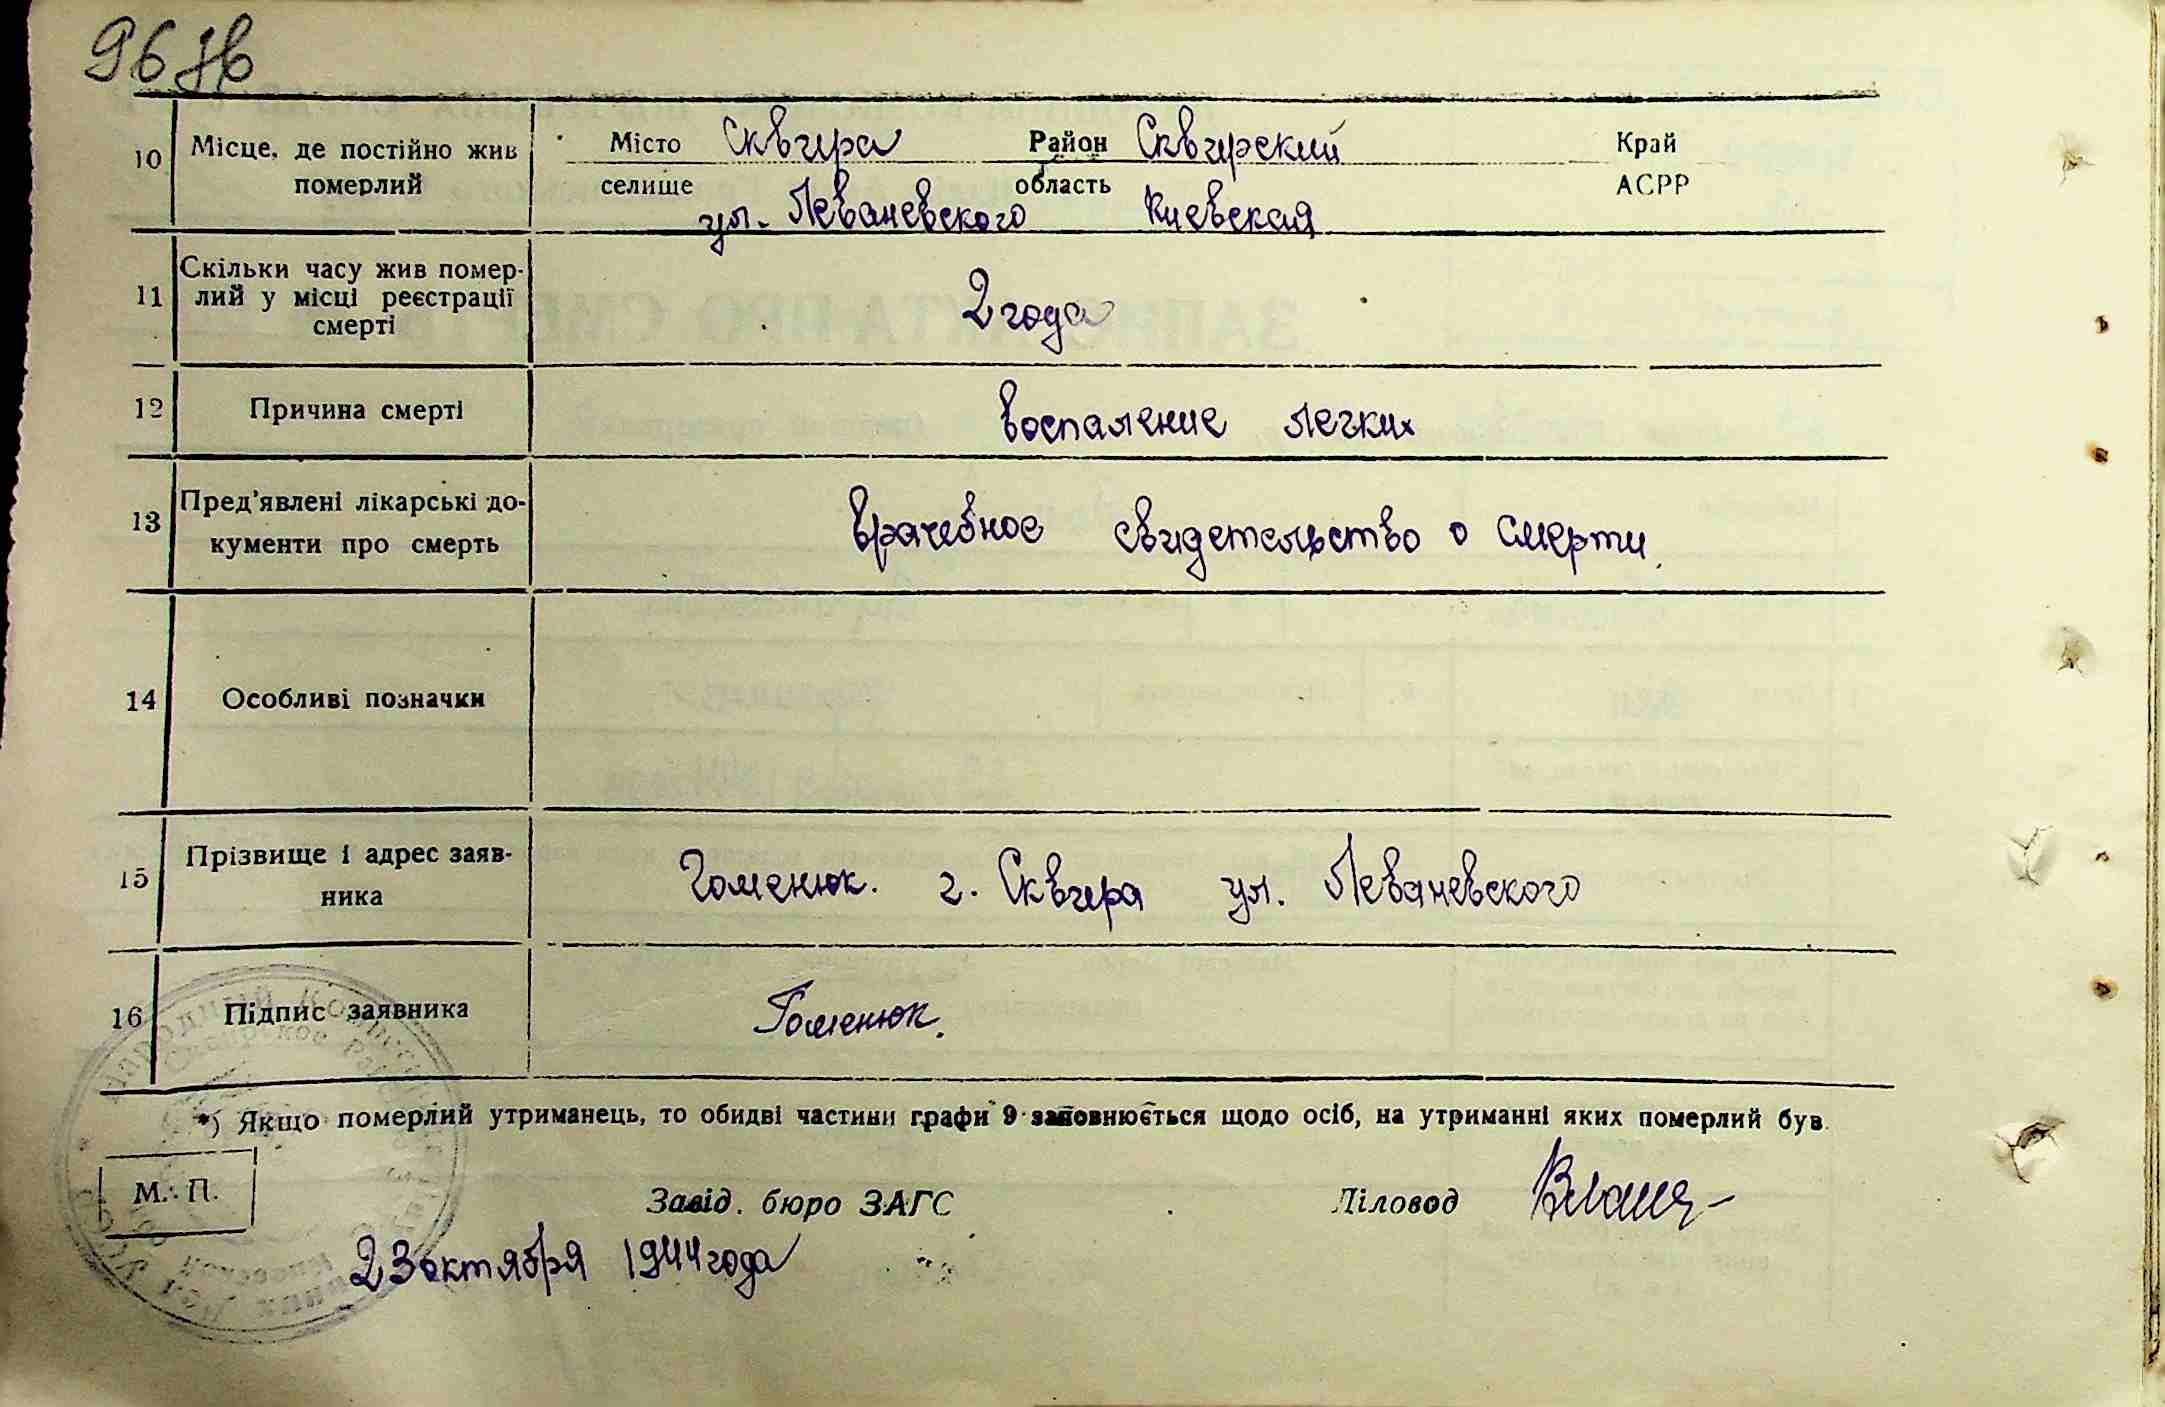 96 зв
10 Місце, де постійно жив Місто Сквира Район Сквирский Край
померлий селище область АСРР
ул. Леваневского Киевская
Скільки часу жив помер-
11 лий у місці реєстрації 2 года
смерті
12 Причина смерті воспаление легких
13 Пред'явлені лікарські до- врачебное свидетельство о смерти
кументи про смерть
14 Особливі позначки
15 Прізвище і адрес заяв- Гоменюк. г. Сквира ул. Леваневского
ника
16 Підпис заявника Гоменюк.
*) Якщо померлий утриманець, то обидві частини графи 9 заповнюється щодо осіб, на утриманні яких померлий був.
М. П. Завід. бюро ЗАГС Діловод
23 октября 1944 года